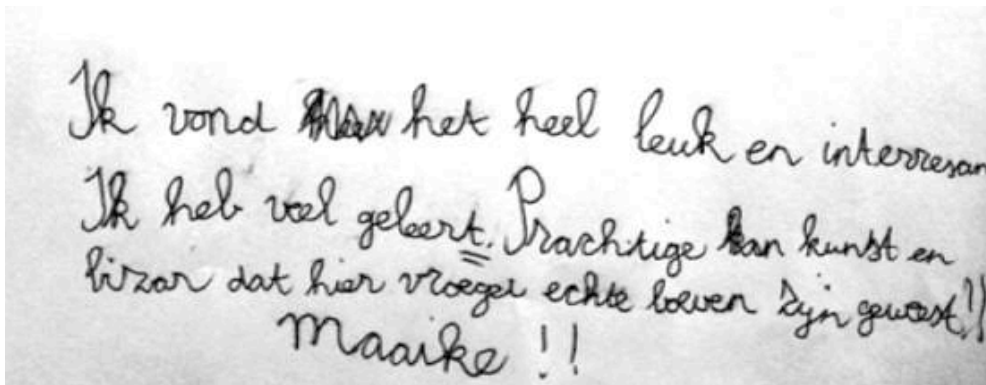 Ik vond het heel leuk en interresan
Ik heb veel geleert. Prachtige kunst en
bizar dat hier vroeger echte boeven zijn geweest!!
Maaike!!